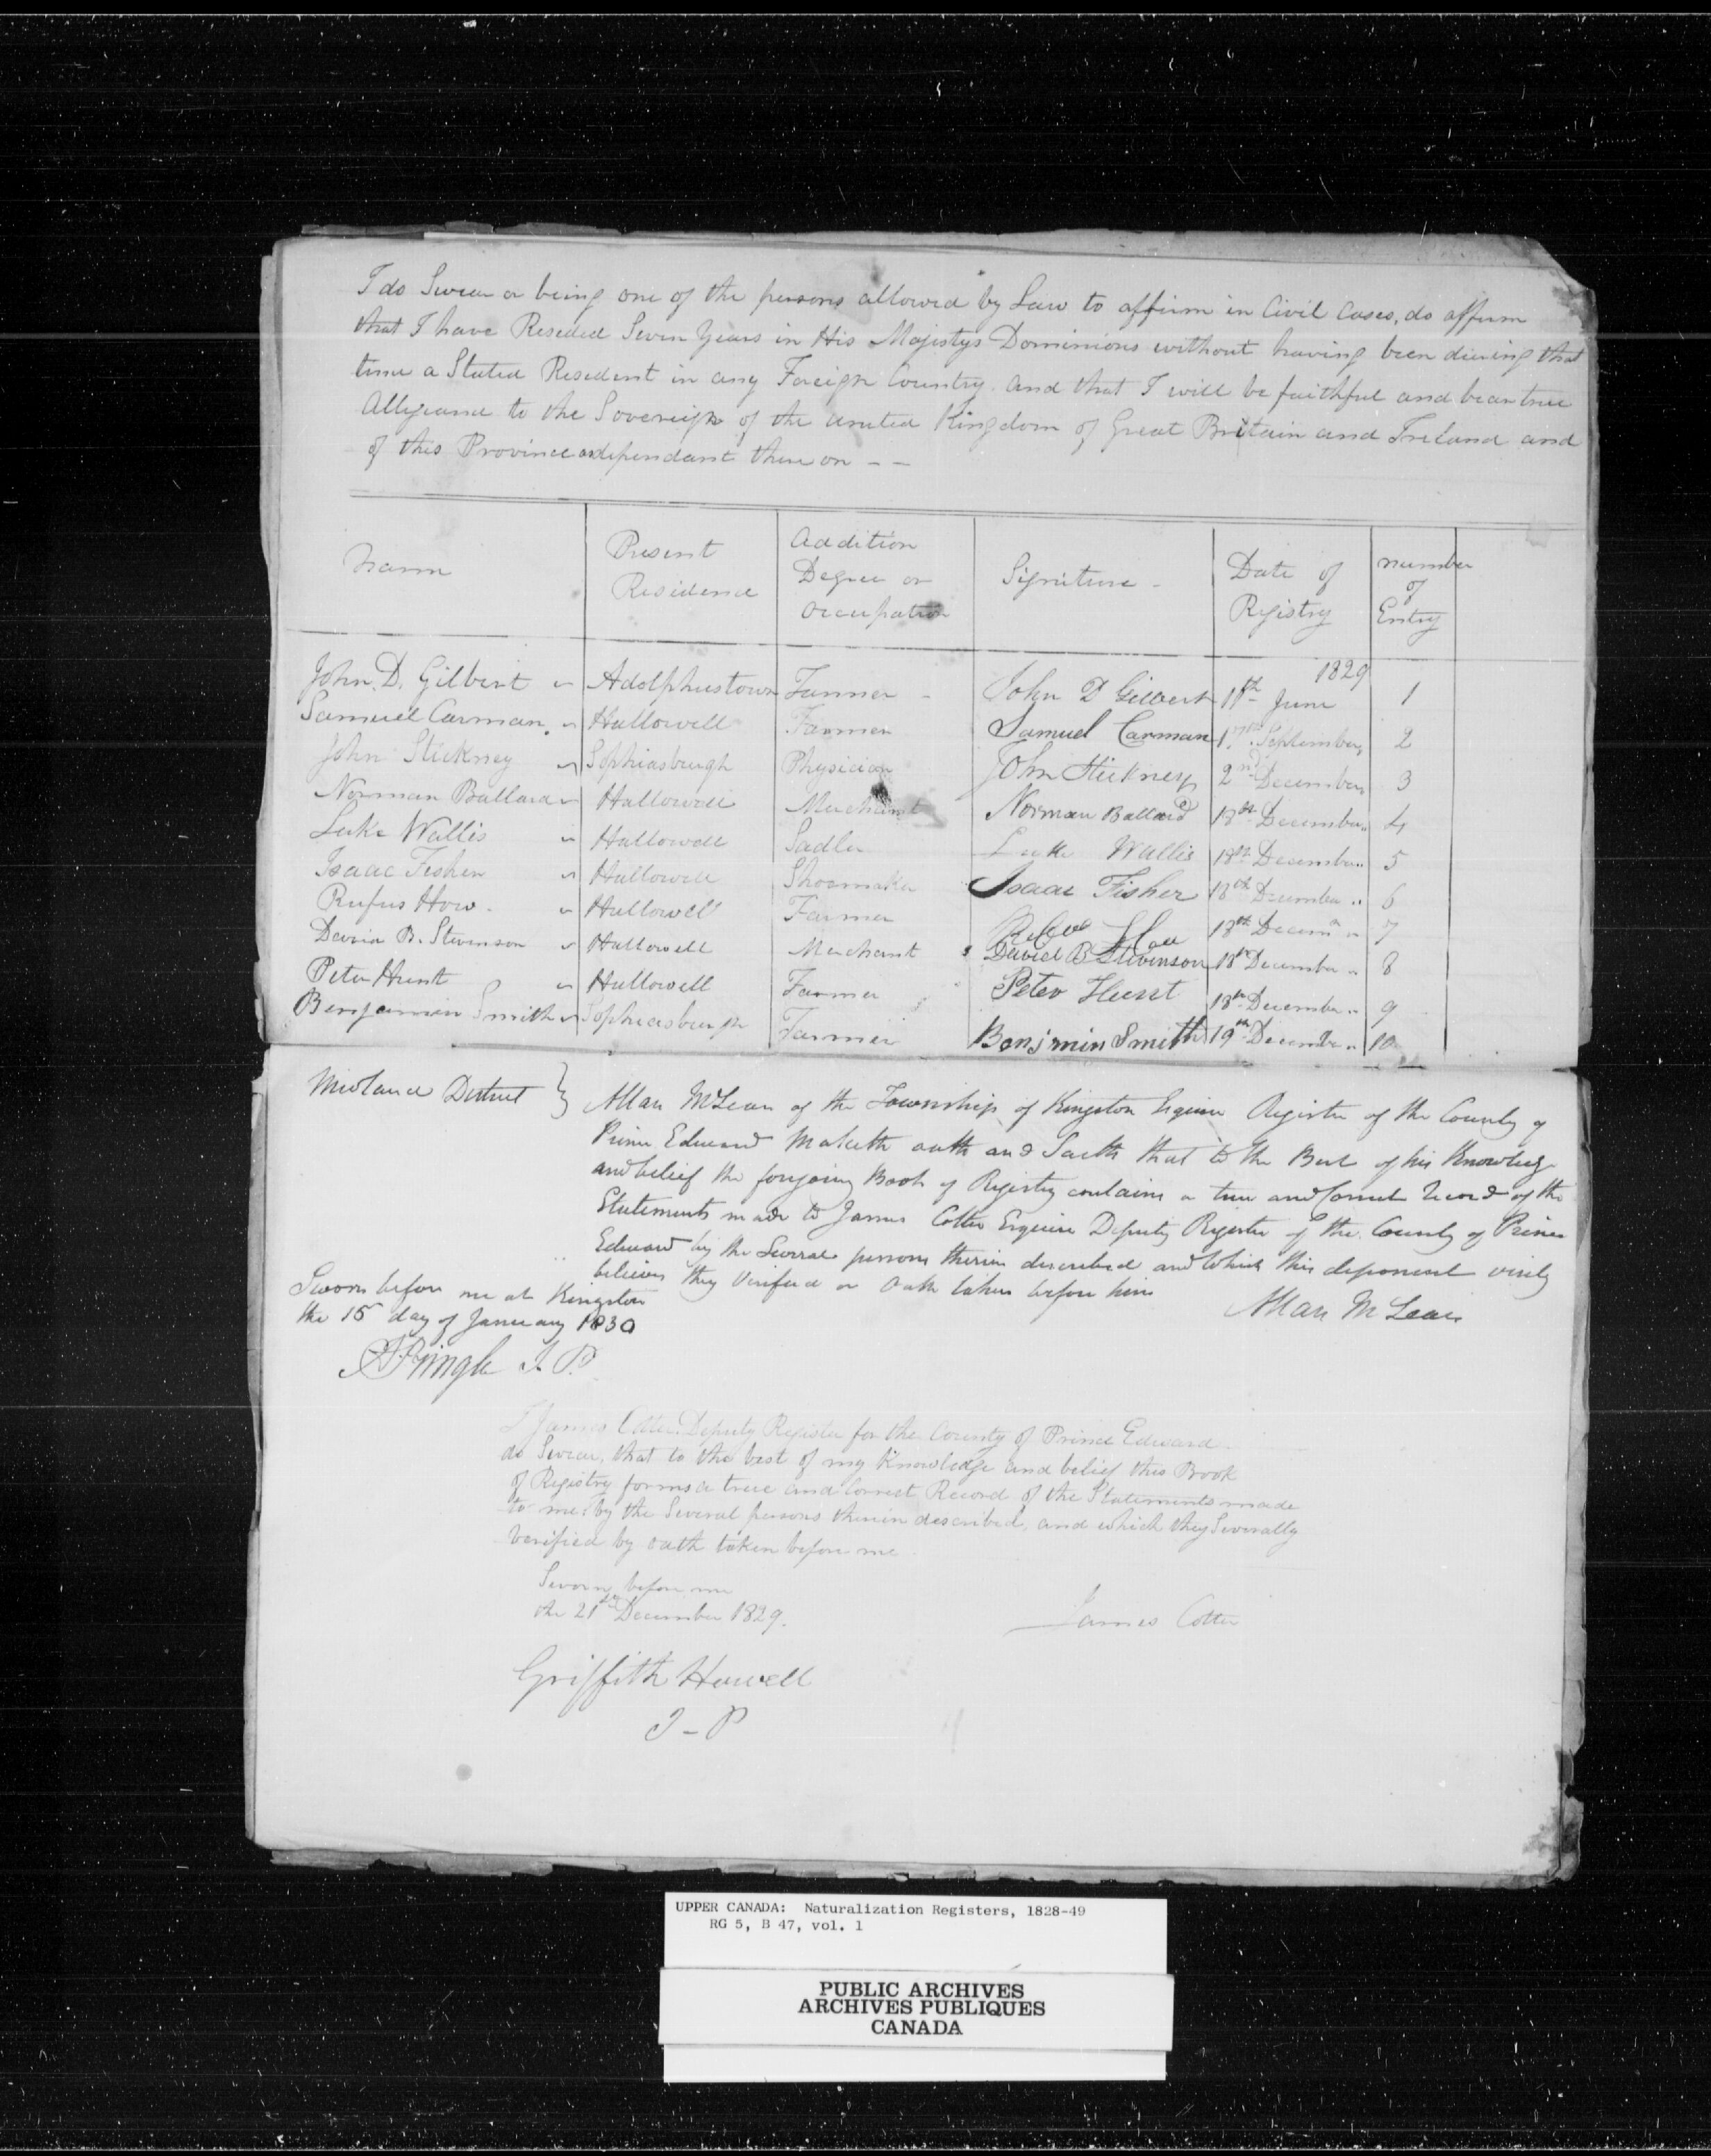 I do Swear or being one of the persons allowed by Law to affirm in Civil Cases, do affirm
that I have Resided Seven Years in His Majestys Dominions without having been during that
time a Stated Resident in any Foreign Country. and that I will be faithful and bear true
Allegiance to the Sovereign of the United Kingdom of Great Britain and Ireland and
of this Province as dependant there on - -
Name | Present Residence | Addition Degree or Occupation | Signiture - | Date of Registry | Number of Entry
1829
John. D. Gilbert | Adolphustown | Farmer - | John D Gilbert | 11th June | 1
Samuel Carman. | Hallowell | Farmer | Samuel Carman | 17th September, | 2
John Stickney | Sophiasburgh | Physician | John Stickney | 2nd December, | 3
Norman Ballard | Hallowell | Merchant | Norman Ballard | 18th December " | 4
Luke Wallis | Hallowell | Sadler | Luke Wallis | 18th December " | 5
Isaac Fisher | Hallowell | Shoemaker | Isaac Fisher | 18th December " | 6
Rufus How. | Hallowell | Farmer | How | 18th Decemr " | 7
David B. Stevenson | Hallowell | Merchant | David B Stevenson | 18th December " | 8
Peter Hunt | Hallowell | Farmer | Peter Hunt | 18th December " | 9
Benjamin Smith | Sophiasburgh | Farmer | Benjmin Smith | 19th December " | 10
Midland District } Allan McLean of the Township of Kingston Esquire Register of the County of
Prince Edward Maketh oath and Saith that to the Best of his Knowledge
and belief the foregoing Book of Registry contains a true and Correct record of the
Statements made to James Cotter Esquire Deputy Register of the County of Prince
Edward by the Several persons therein described and which this deponent verily
believes they Verified on Oath taken before him
Sworn before me at Kingston
the 15 day of January 1830
Allan McLean
Pringle J. P.
I James Cotter Deputy Register for the County of Prince Edward
do Swear, that to the best of my Knowledge and belief this Book
of Registry forms a true and Correct Record of the Statements made
to me by the Several persons therein described, and which they Severally
verified by oath taken before me
Sworn before me
the 21st December 1829.
James Cotter
Griffith Howell
J - P
UPPER CANADA: Naturalization Registers, 1828-49
RG 5, B 47, vol. 1
PUBLIC ARCHIVES
ARCHIVES PUBLIQUES
CANADA